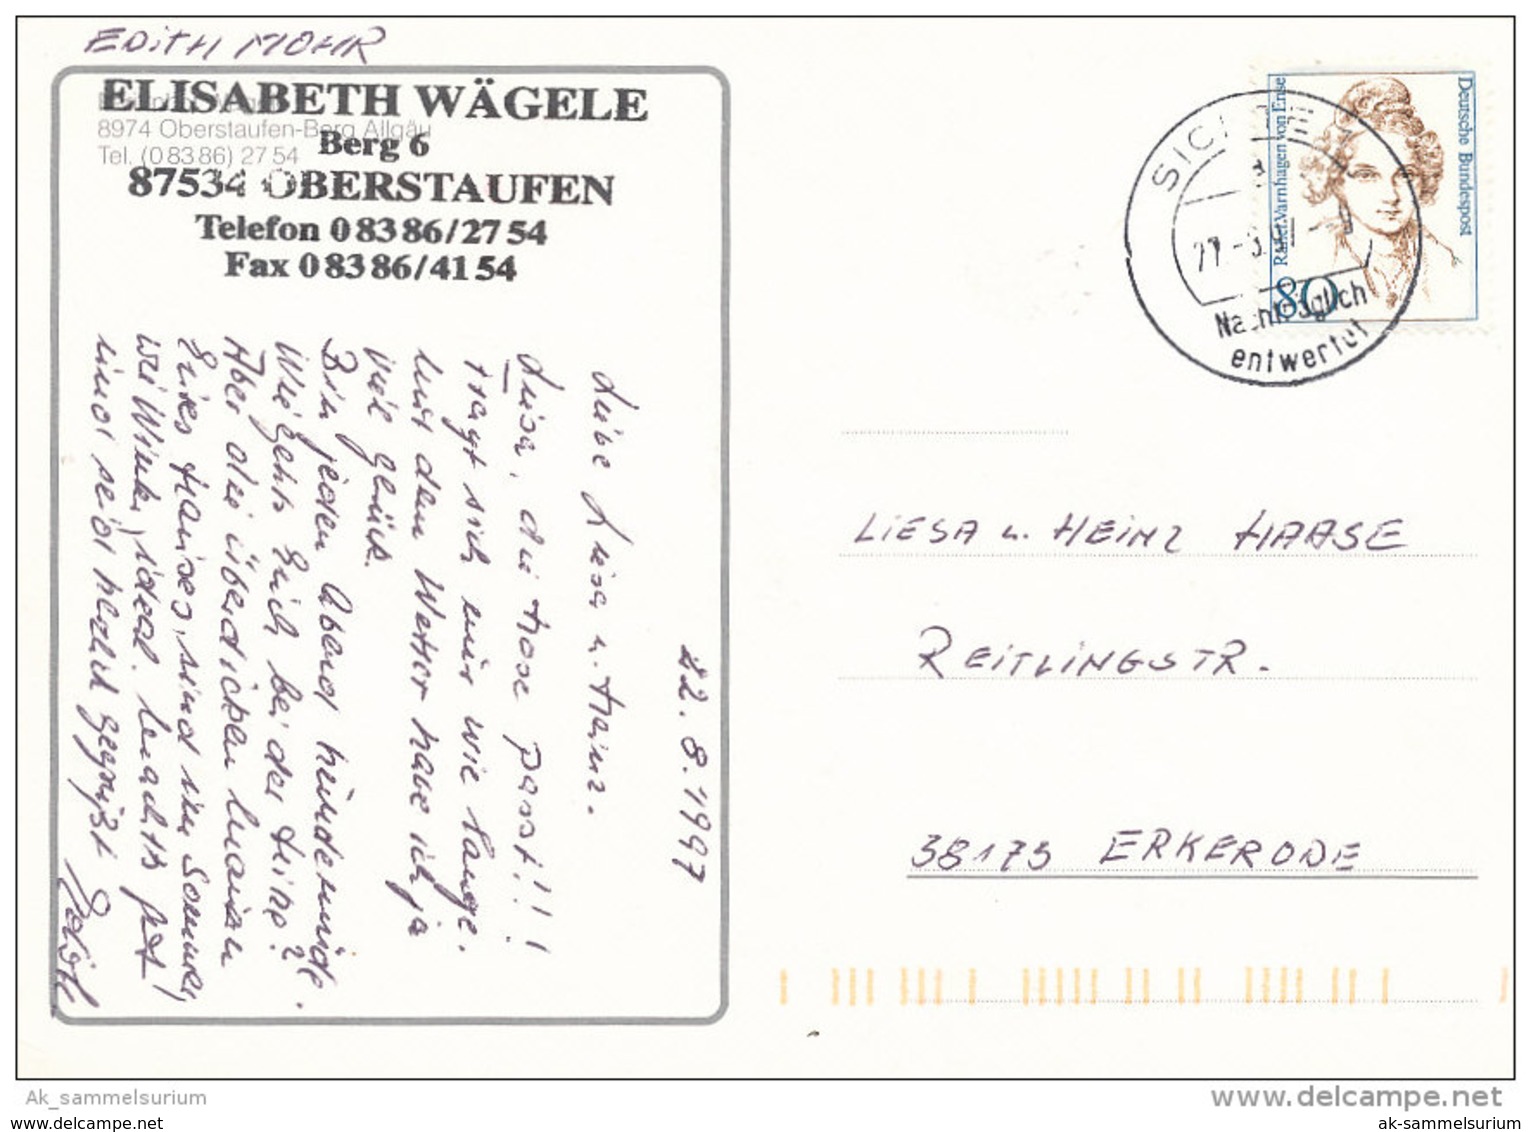 EDITH MOHR
ELISABETH WÄGELE
8974 Oberstaufen-Berg Allgäu
Tel. (0 83 86) 27 54
Berg 6
87534 OBERSTAUFEN
Telefon 0 83 86/27 54
Fax 0 83 86/41 54
22.8.1997
Liebe Liesa u. Heinz.
Liesa, die Hose passt!!!
Fragt sich nur wie lange.
Mit dem Wetter habe ich ja
viel Glück.
Bin jeden Abend hundemüde.
Wie geht's Euch bei der Hitze?
Aber die überdicken Mauern
Eures Hauses, sind im Sommer,
wie Winter, ideal. Macht's gut
und seid herzlich gegrüßt
Edith
Deutsche Bundespost
Rahel Varnhagen von Ense
80
Nachträglich
entwertet
LIESA u. HEINZ HAASE
REITLINGSTR.
38173 ERKERODE
Ak_sammelsurium
www.delcampe.net
www.delcampe.net
ak-sammelsurium